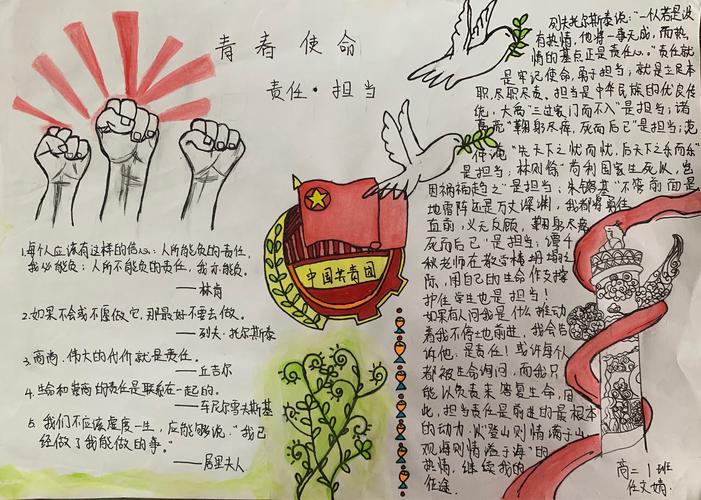 青春使命
责任·担当
1.每个人应该有这样的信心：人所能负的责任，
我必能负；人所不能负的责任，我亦能负。
——林肯
2.如果不会或不愿做它，那最好不要去做。
——列夫·托尔斯泰
3.高尚、伟大的代价就是责任。
——丘吉尔
4.生命和崇高的责任是联系在一起的。
——车尼尔雪夫斯基
5.我们不应该虚度一生，应能够说："我已
经做了我能做的事。"
——居里夫人
中国共青团
列夫托尔斯泰说："一个人若是没
有热情，他将一事无成，而热
情的基点正是责任心。"责任就
是牢记使命，勇于担当，就是立足本
职、尽职尽责。担当是中华民族的优良传
统，大禹"三过家门而不入"是担当；诸
葛亮"鞠躬尽瘁，死而后已"是担当；范
仲淹"先天下之忧而忧，后天下之乐而乐"
是担当；林则徐"苟利国家生死以，岂
因祸福趋避之"是担当；朱镕基"不管前面是
地雷阵还是万丈深渊，我都将勇往
直前，义无反顾，鞠躬尽瘁，
死而后已"是担当；谭千
秋老师在教学楼坍塌之
际，用自己的生命作支撑
护住学生也是担当！
如果有人问我是什么推动
着我不停地前进，我会告
诉他，是责任！或许每个人
都被生命询问，而我只
能以负责来答复生命，因
此，担当责任是前进的最根本
的动力，以登山则情满于山，
观海则情溢于海"的
热情，继续我的
征途。
高二1班
任文婧